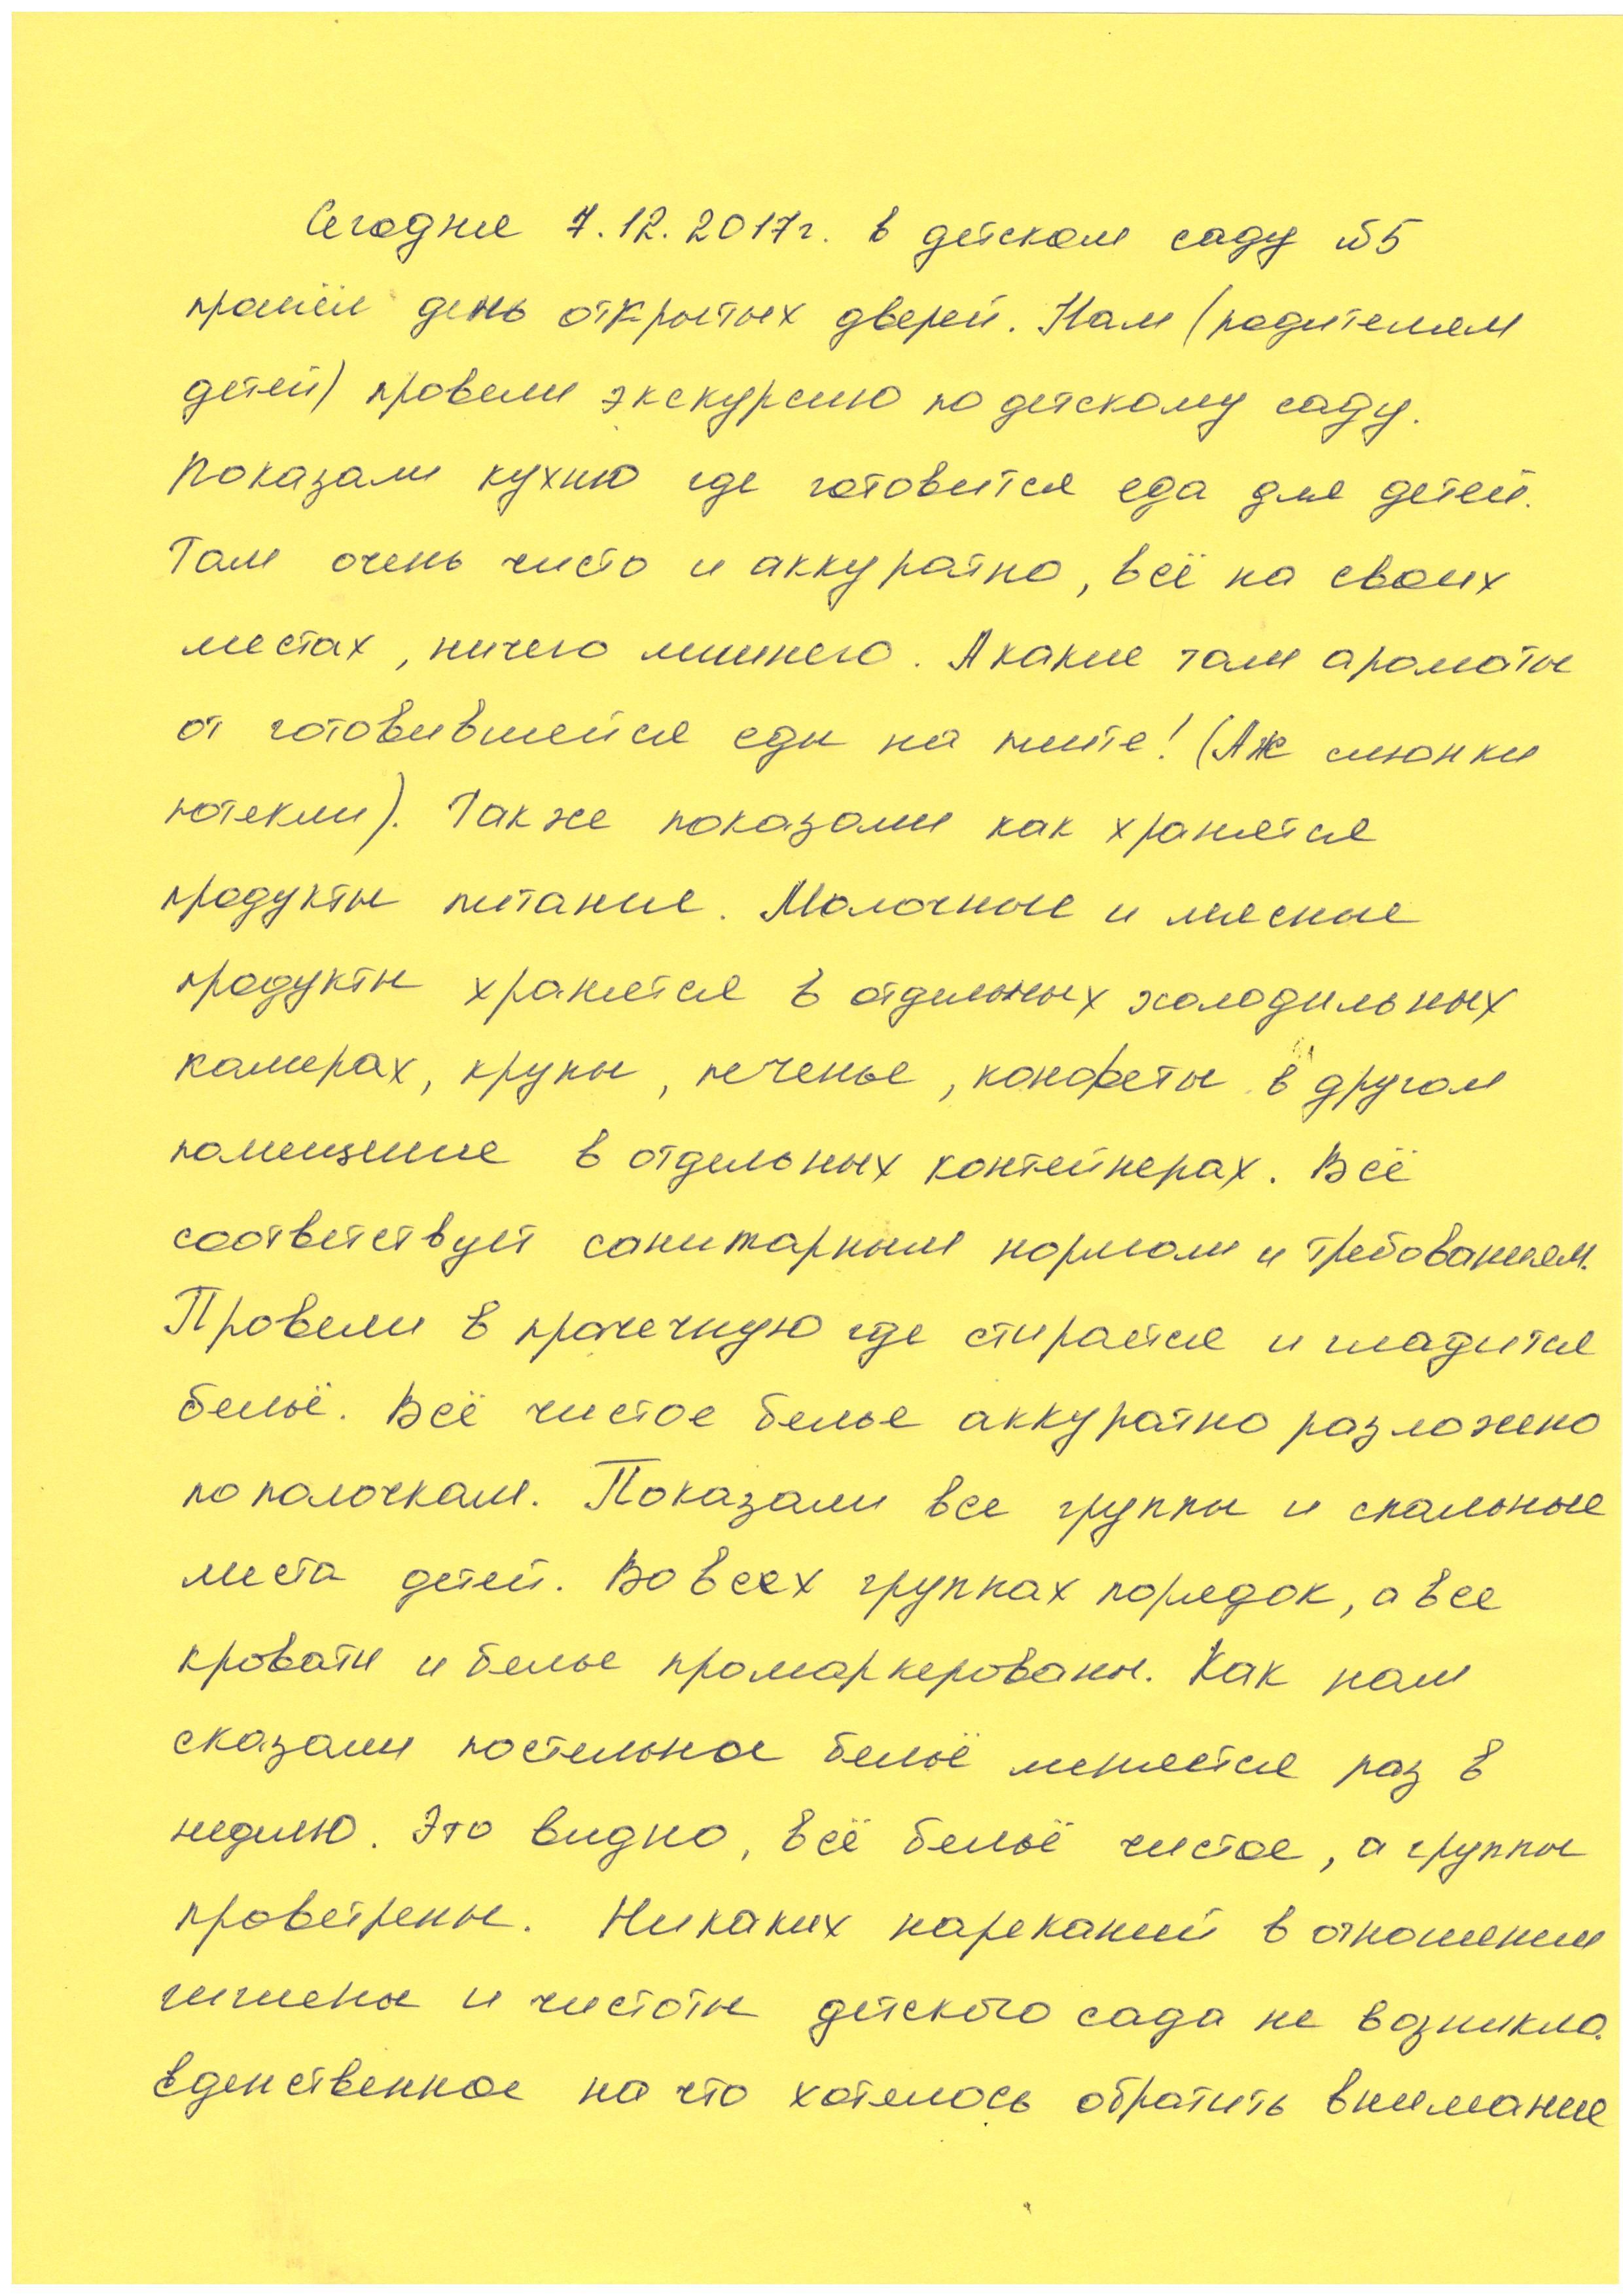 Сегодня 7.12.2017г. в детском саду №5
прошёл день открытых дверей. Нам (родителям
детей) провели экскурсию по детскому саду.
Показали кухню где готовится еда для детей.
Там очень чисто и аккуратно, всё на своих
местах, ничего лишнего. А какие там ароматы
от готовившейся еды на плите! (Аж слюнки
потекли). Также показали как хранятся
продукты питания. Молочные и мясные
продукты хранятся в отдельных холодильных
камерах, крупы, печенье, конфеты в другом
помещение в отдельных контейнерах. Всё
соответствует санитарным нормам и требованиям.
Провели в прачечную где стирается и гладится
бельё. Всё чистое белье аккуратно разложено
по полочкам. Показали все группы и спальные
места детей. Во всех группах порядок, а все
кровати и белье промаркерованы. Как нам
сказали постельное бельё меняется раз в
неделю. Это видно, всё бельё чистое, а группы
проветрены. Никаких нареканий в отношении
гигиены и чистоты детского сада не возникло.
Единственное на что хотелось обратить внимание